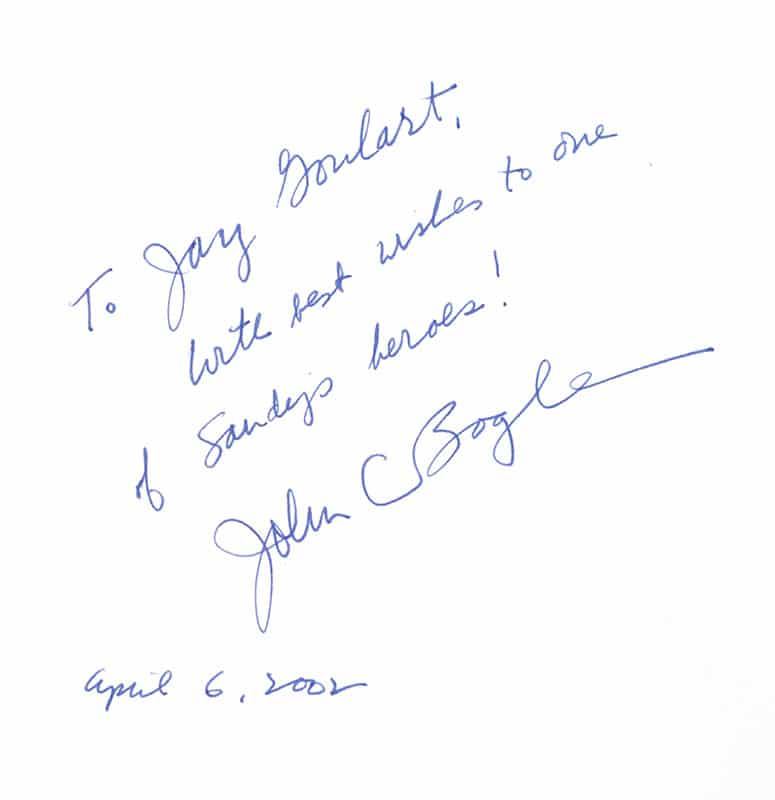 To Jay Goulart,
With best wishes to one
of Sandy's heroes!
John C Bogle
April 6, 2002